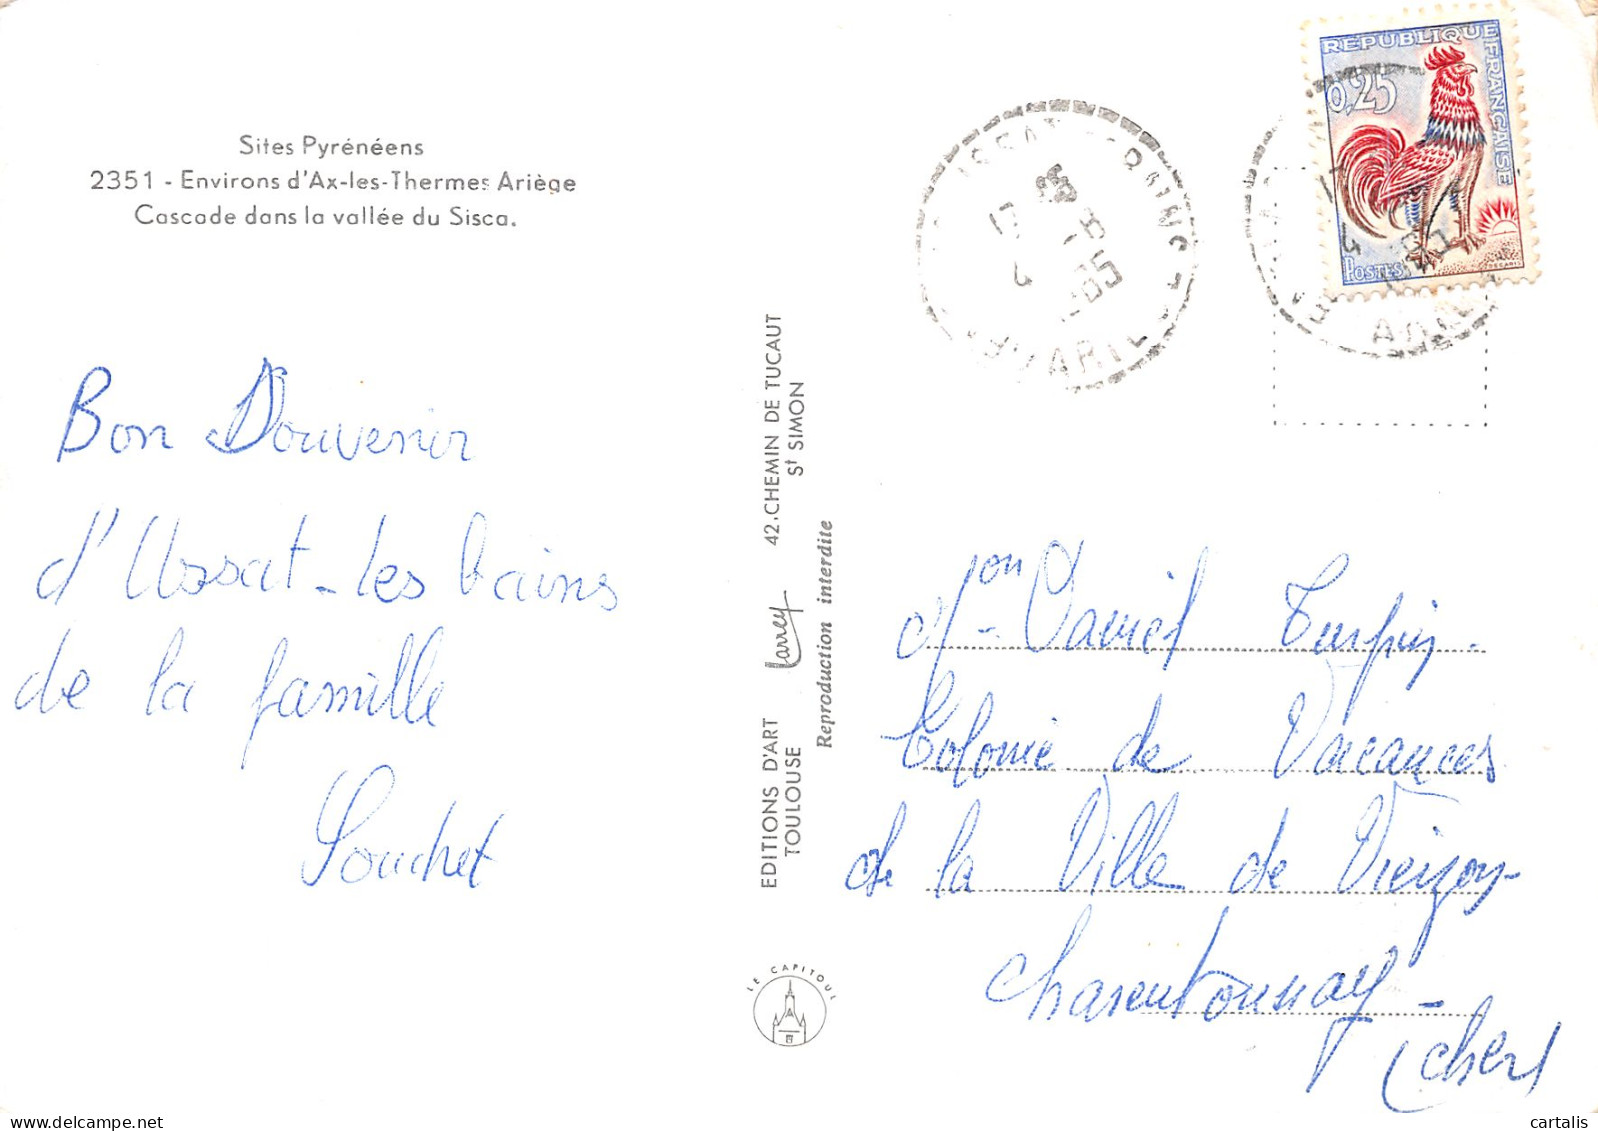 Sites Pyrénéens
2351 - Environs d'Ax-les-Thermes Ariège
Cascade dans la vallée du Sisca.
Bon Souvenir
d'Ussat-les bains
de la famille
Souchet
EDITIONS D'ART Larrey 42, CHEMIN DE TUCAUT
TOULOUSE St SIMON
Reproduction interdite
LE CAPITOUL
REPUBLIQUE FRANÇAISE
0,25
POSTES
DECARIS
Mon Daniel Turpin.
Colonie de Vacances
de la Ville de Vierzon
Charentonnay -
(Cher)
cartalis